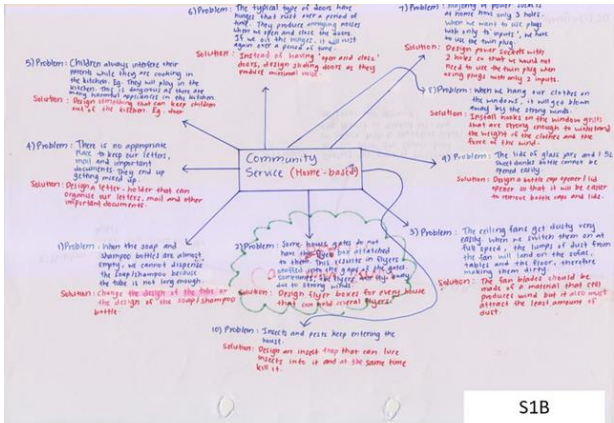 6) Problem: The typical type of doors have
hinges that rust over a period of
time. They produce annoying noises
when we open and close the doors.
If we oil the hinges, it will rust
again over a period of time.
Solution: Instead of having 'open and close'
doors, design sliding doors as they
produce minimal noise.
7) Problem: Majority of power sockets
at home have only 3 holes.
When we want to use plugs
with only 2 inputs, we have
to use the twin plug.
Solution: Design power sockets with
2 holes so that we would not
need to use the twin plug when
using plugs with only 2 inputs.
5) Problem: Children always interfere their
parents while they are cooking in
the kitchen. Eg. They will play in the
kitchen. This is dangerous as there are
many harmful appliances in the kitchen.
Solution: Design something that can keep children
out of the kitchen. Eg.
Problem: When we hang our clothes on
the windows, it will get blown
away by the strong winds.
Solution: Install hooks on the window grills
that are strong enough to withstand
the weight of the clothes and the
force of the wind.
4) Problem: There is no appropriate
place to keep our letters,
mail and important
documents. They end up
getting mixed up.
Solution: Design a letter-holder that can
organise our letters, mail and other
important documents.
Community
Service (Home-based)
9) Problem: The lids of glass jars and
bottles cannot be
opened easily.
Solution: Design a bottle cap opener / lid
opener so that it will be easier
to remove bottle caps and lids.
1) Problem: When the soap and
shampoo bottles are almost
empty, we cannot dispense
the soap/shampoo because
the tube is not long enough.
Solution: Change the design of the tube or
the design of the soap/shampoo
bottle.
2) Problem: Some house gates do not
have the flyer box attached
to them. This results in flyers
stuffed into the gaps of the gates.
Sometimes, the flyers fly away
due to strong winds.
Solution: Design flyer boxes for every house
that can hold flyers.
3) Problem: The ceiling fans get dusty very
easily. When we switch them on at
full speed, the lumps of dust from
the fan will land on the sofas,
tables and the floor, therefore
making them dirty.
Solution: The fan blades should be
made of a material that
produces wind but it also must
attract the least amount of
dust.
10) Problem: Insects and pests keep entering the
house.
Solution: Design an insect trap that can lure
insects into it and at the same time
kill it.
S1B